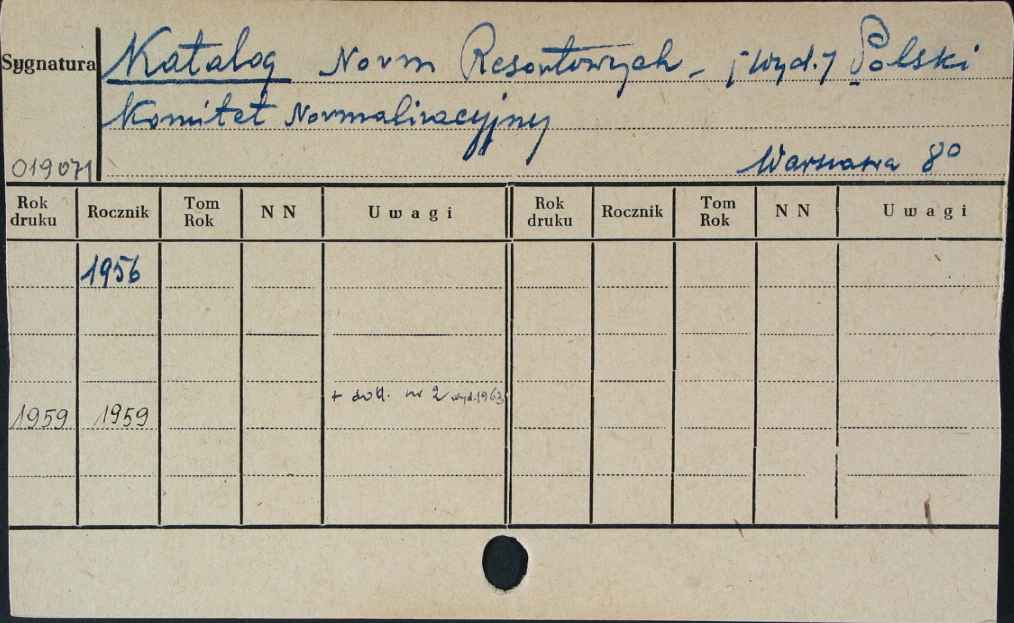 Sygnatura
Katalog Norm Resortowych - [Wyd.] Polski
Komitet Normalizacyjny
019071
Warszawa 8°
Rok druku Rocznik Tom Rok N N Uwagi Rok druku Rocznik Tom Rok N N Uwagi
1956
+ dod. nr 2 wyd. 1963
1959 1959